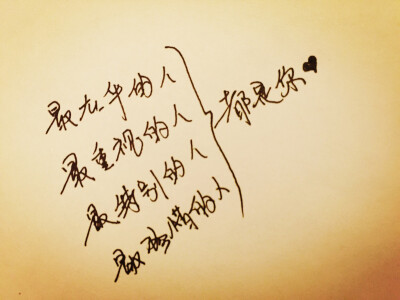 最在乎的人
最重视的人
最特别的人
最珍惜的人
都是你♥